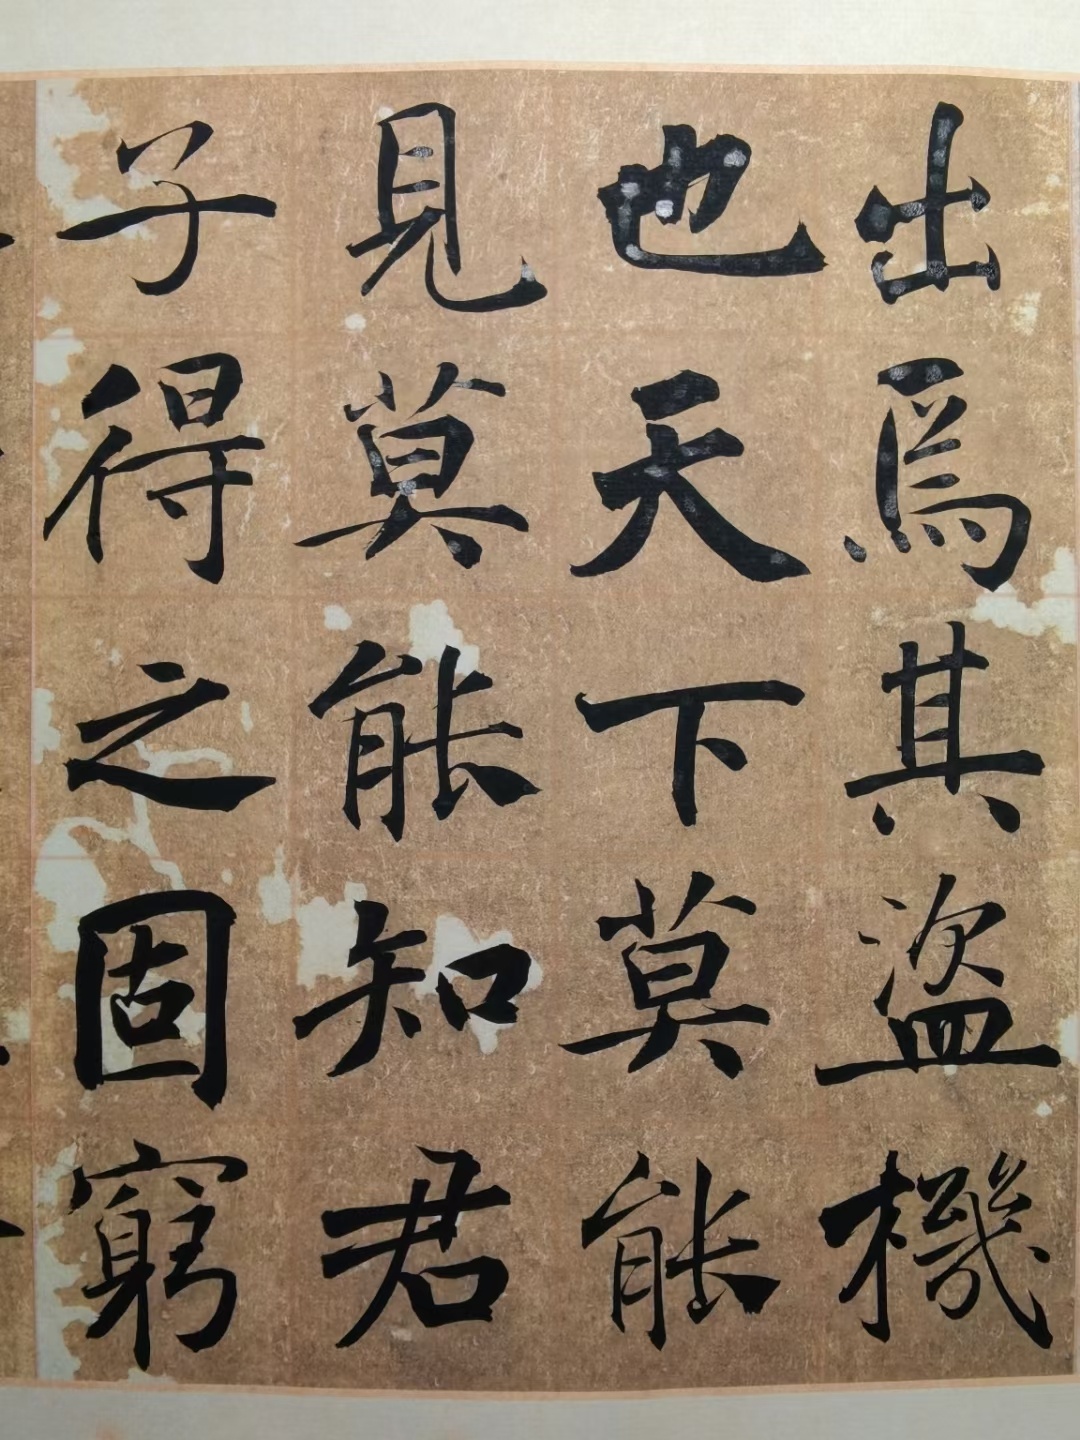 出爲其盜機
也天下莫能
見莫能知君
子得之固窮